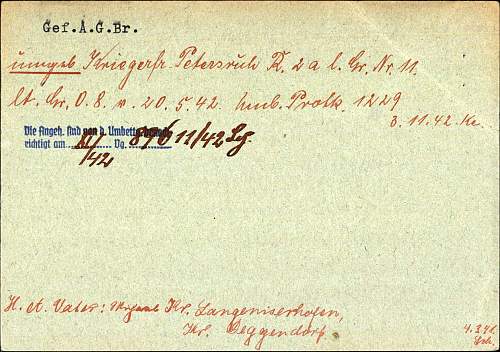 Gef.A.G.Br.
umgeb. Kriegerfr. Petersruh R. 2 a l. Gr. Nr. 11.
lt. Gr. O. 8. v. 20.5.42. Umb. Protk. 1229
3.11.42. Ke
Die Angeh. sind von d. Umbettung
richtigt am XI/42 Vg. 876 11/42
H. A. Vater: Kr. Langeniserhofen,
Kr. Deggendorf.
4.3.41.